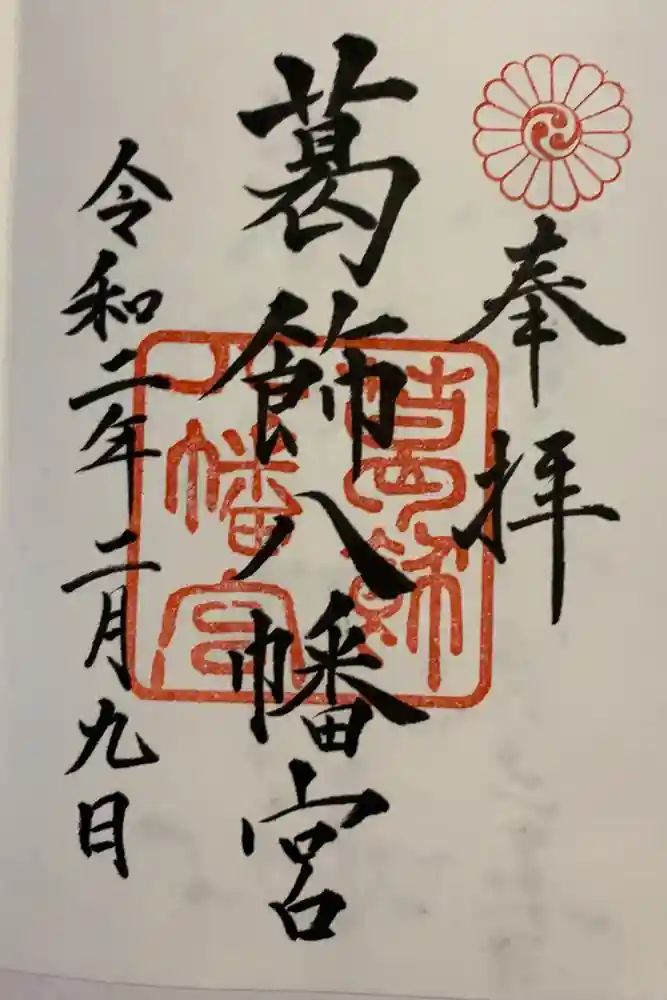 奉拝
葛飾八幡宮
葛飾
八幡宮
令和二年二月九日